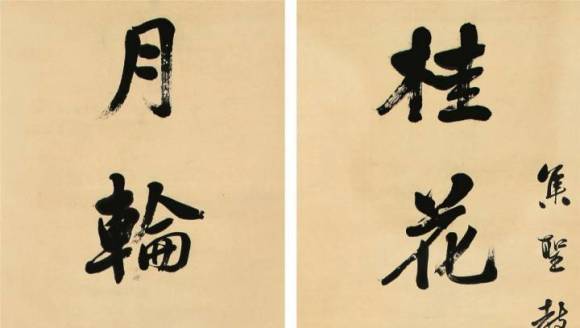 集聖教
桂花
月輪